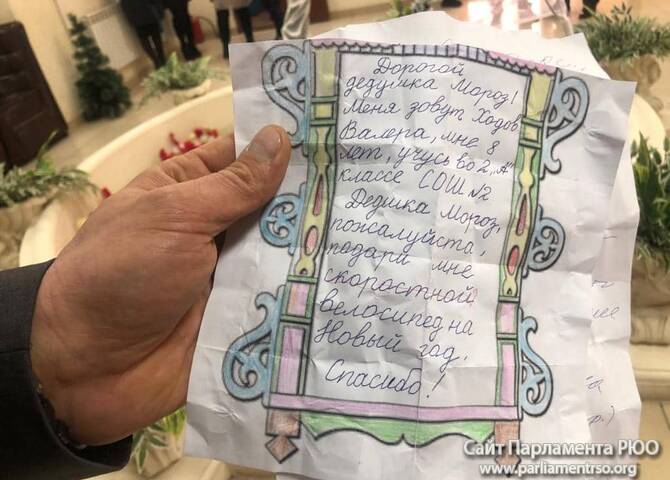 Дорогой
дедушка Мороз!
Меня зовут Ходов
Валера, мне 8
лет, учусь во 2 „А"
классе СОШ №2
Дедушка Мороз,
пожалуйста,
подари мне
скоростной
велосипед на
Новый год.
Спасибо!
Сайт Парламента РЮО
www.parliamentrso.org